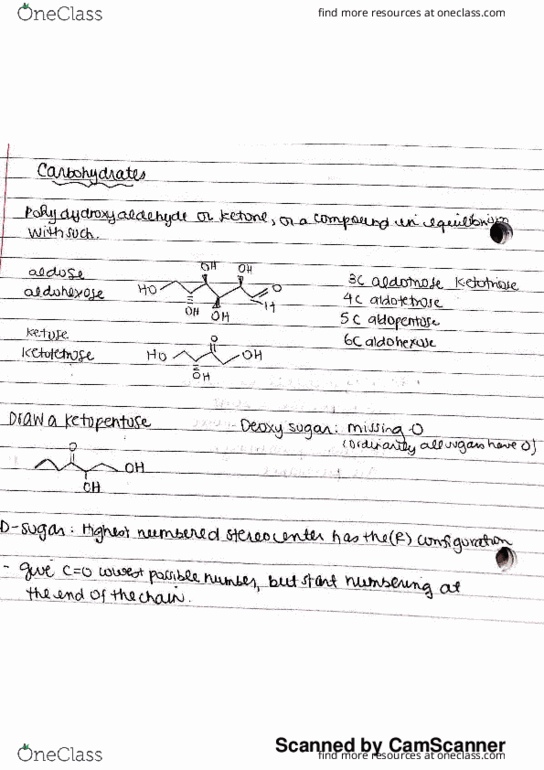 OneClass
find more resources at oneclass.com
Carbohydrates
Polyhydroxyaldehyde or ketone, or a compound in equilibrium
with such.
aldose
aldohexose
HO
OH
OH
OH
OH
O
H
3C aldotriose ketotriose
4C aldotetrose
5C aldopentose
6C aldohexose
ketose
ketotetrose
HO
O
OH
OH
Draw a ketopentose
Deoxy sugar: missing O
(ordinarily all sugars have O)
O
OH
OH
D-sugar: Highest numbered stereocenter has the (R) configuration
- give C=O lowest possible number, but start numbering at
the end of the chain.
Scanned by CamScanner
OneClass
find more resources at oneclass.com